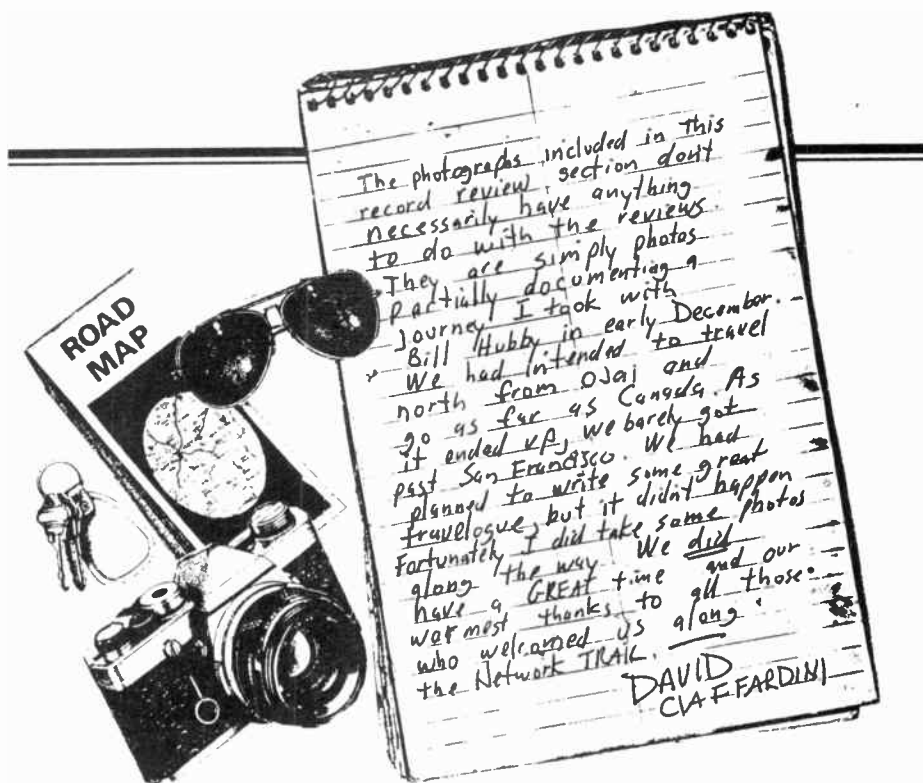 The photographs included in this
record review section don't
necessarily have anything
to do with the reviews.
They are simply photos
partially documenting a
journey I took with
Bill Hubby in early December.
We had intended to travel
north from Ojai and
go as far as Canada. As
it ended up, we barely got
past San Francisco. We had
planned to write some great
travelogue, but it didn't happen
Fortunately I did take some photos
along the way. We did
have a GREAT time and our
warmest thanks to all those
who welcomed us along
the Network TRAIL.
DAVID
CIAFFARDINI
ROAD
MAP